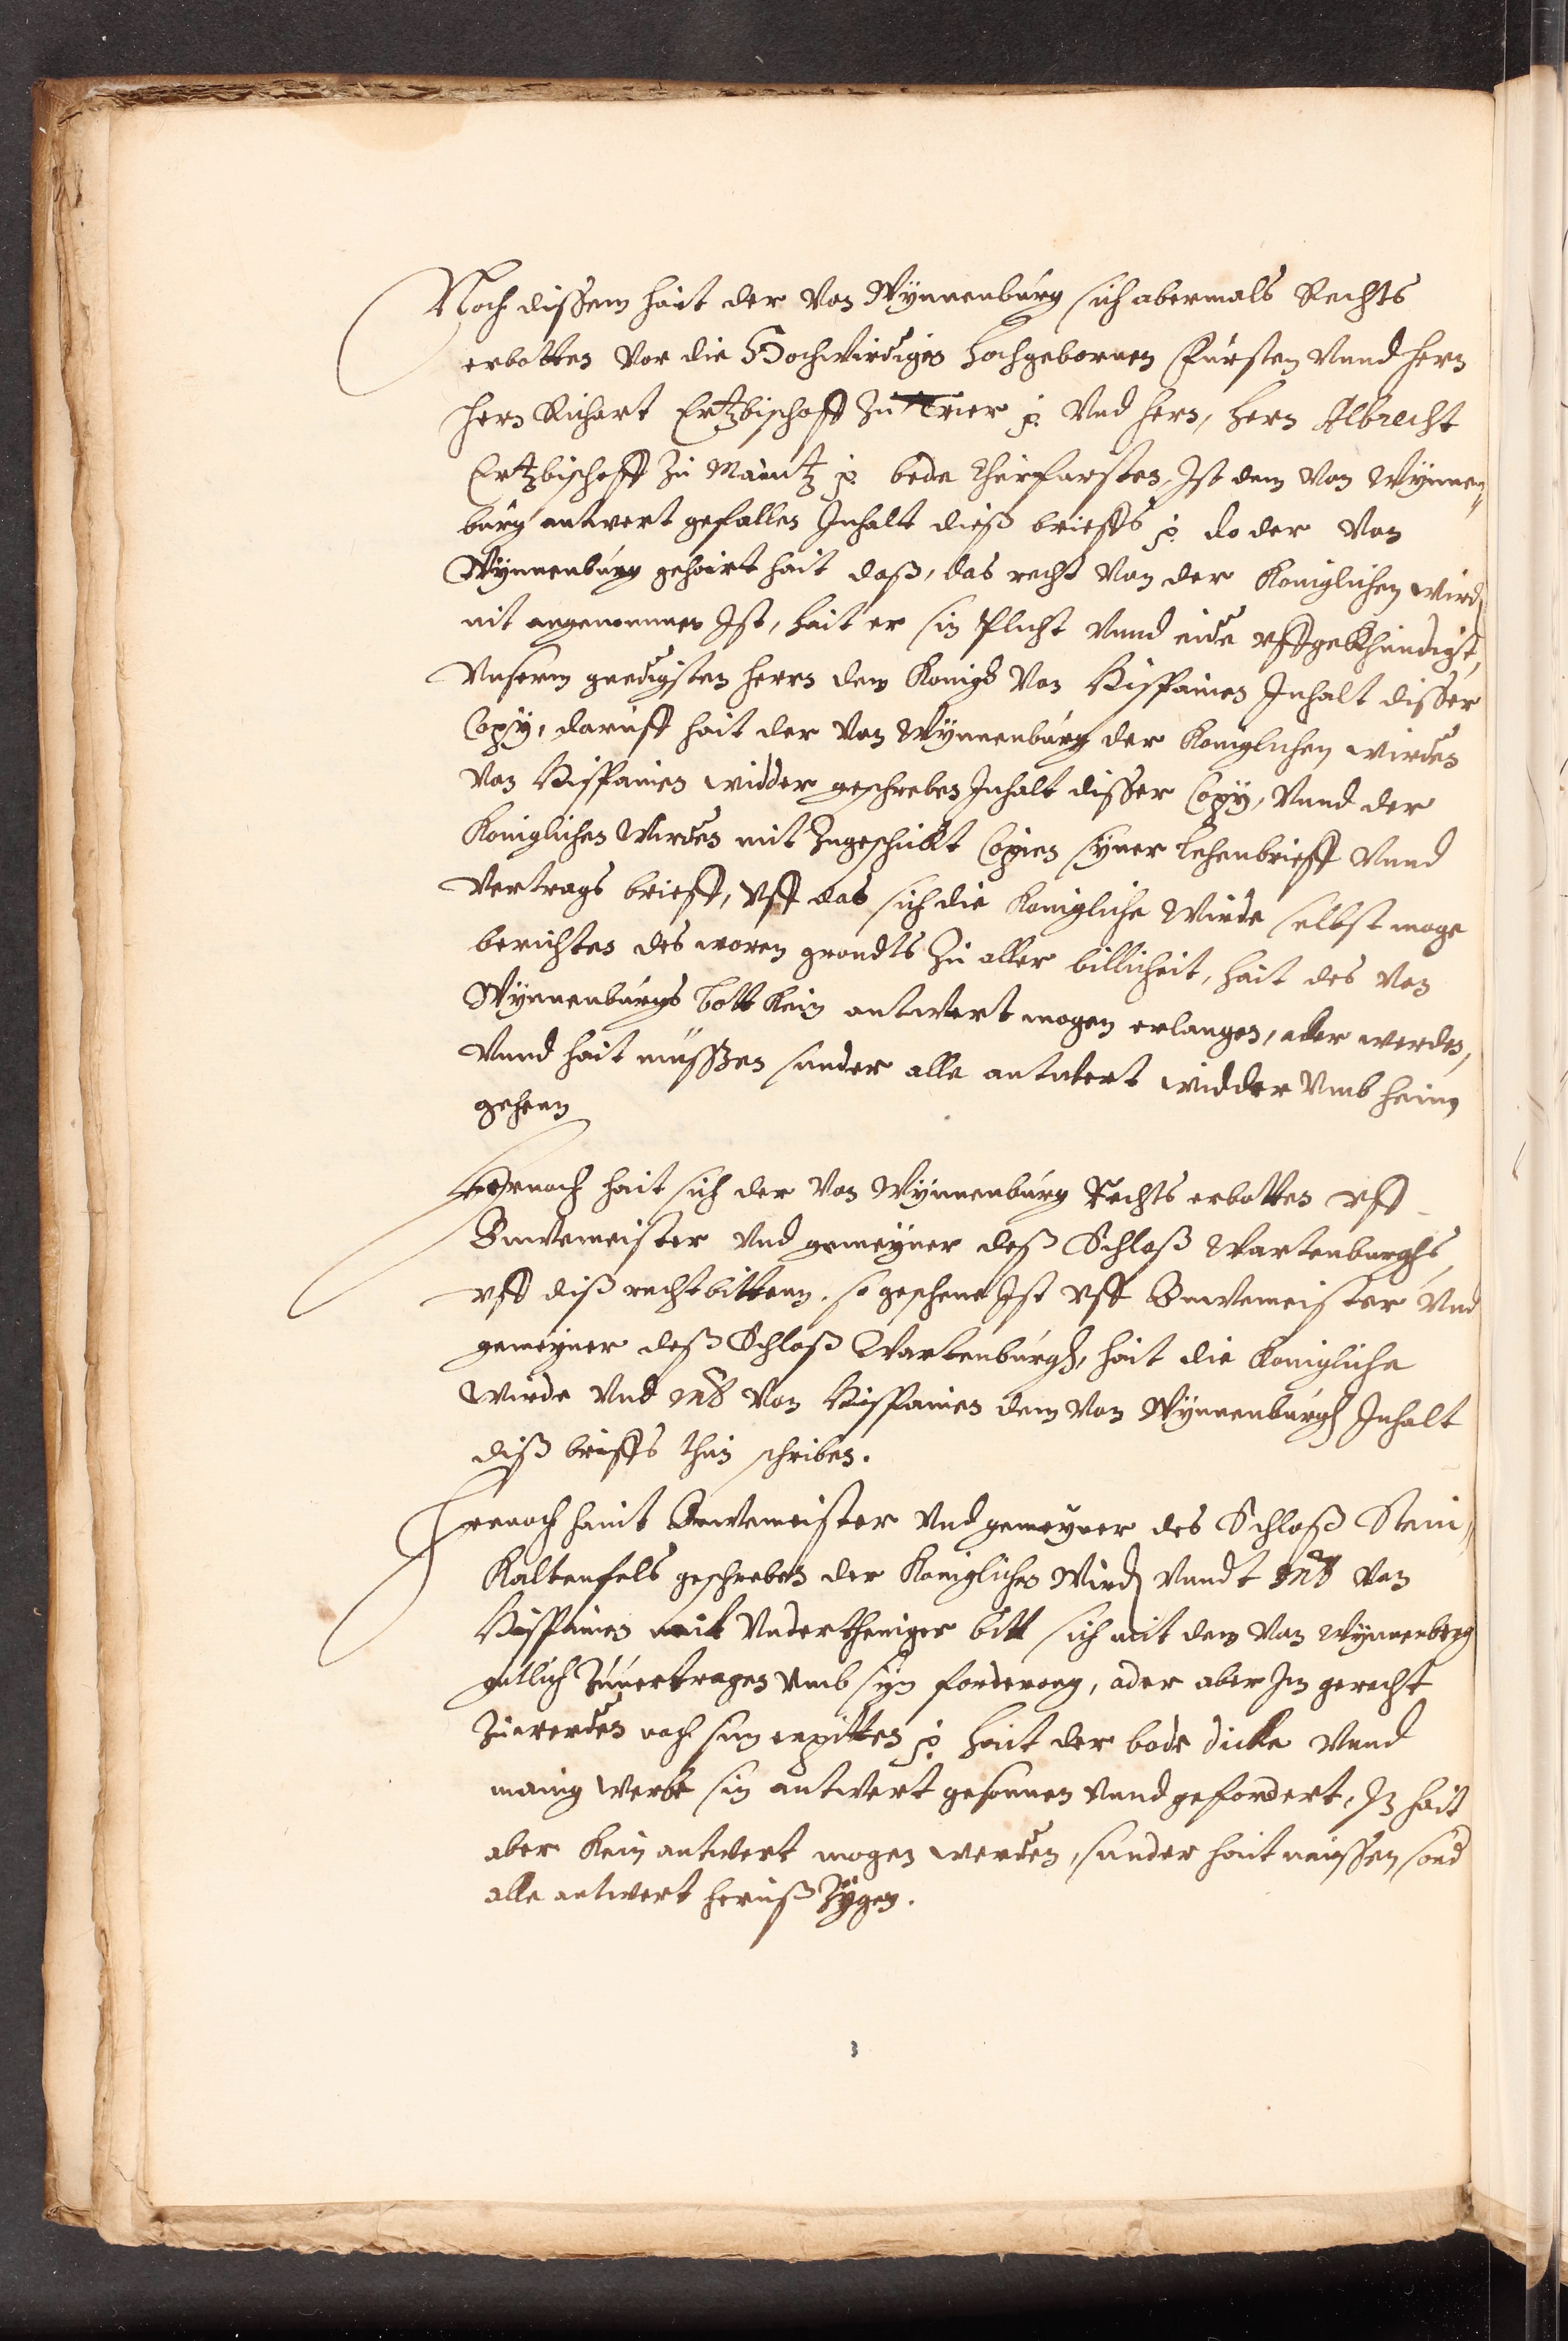 Noch dissem hait der von Wynnenburg sich abermals Rechts
erbotten vor die Hochwirdigen hochgebornen Fursten vnnd hern
hern Richart Ertzbischoff zu Trier p. vnd hern, hern Albrecht
Ertzbischoff zu Maintz p. bede Churfursten, Ist dem von Wynnen„
burg antwert gefallen Inhalt dieß brieffs p. do der von
Wynnenburg gehoirt hait daß, das recht von der Koniglichen wird
nit angenommen Ist, hait er sin Plicht vnnd eide vffgekhundigt,
vnserm gnedigsten herrn dem Konigk von Hispanien Inhalt disser
Copy, daruff hait der von Wynnenburg der Koniglichen wirden
von Hispanien widder geschreben Inhalt disser Copy, vnnd der
Koniglichen Wirden mit zugeschickt Copien syner Lehenbrieff vnnd
vertrags brieff, vff das sich die Konigliche Wirde selbst moge
berichten des waren grondts zu aller billicheit, hait des von
Wynnenburgs bott kein antwert mogen erlangen, ader werden,
vnnd hait müssen sunder alle antwert widder vmb heim
geheen
Hernoch hait sich der von Wynnenburg Rechts erbotten vff
Buwemeister vnd gemeyner deß Schloß Wartenburghs,
vff diß recht bittenn. so geschene Ist vff Buwemeister vnd
gemeyner deß Schloß Wartenburgh, hait die Konigliche
wirde vnd mt von Hispanien dem von Wynnenburgh Inhalt
diß brieffs thun schriben.
Hernoch haint Buwemeister vnd gemeyner des Schloß Stein„
Kaltenfels geschreben der Koniglichen Wird vnndt mt von
Hispanien mit vndertheniger bitt sich mit dem von Wynnenberg
gutlich zuuertragen vmb syn forderong, ader aber Im gerecht
zuwerden noch sim erpitten p. hait der bode dicke vnnd
manig werbe sin antwert gesonnen vnnd gefordert, Im hait
aber kein antwert mogen werden, sunder hait müssen sond
alle antwert heruß zygen.
3